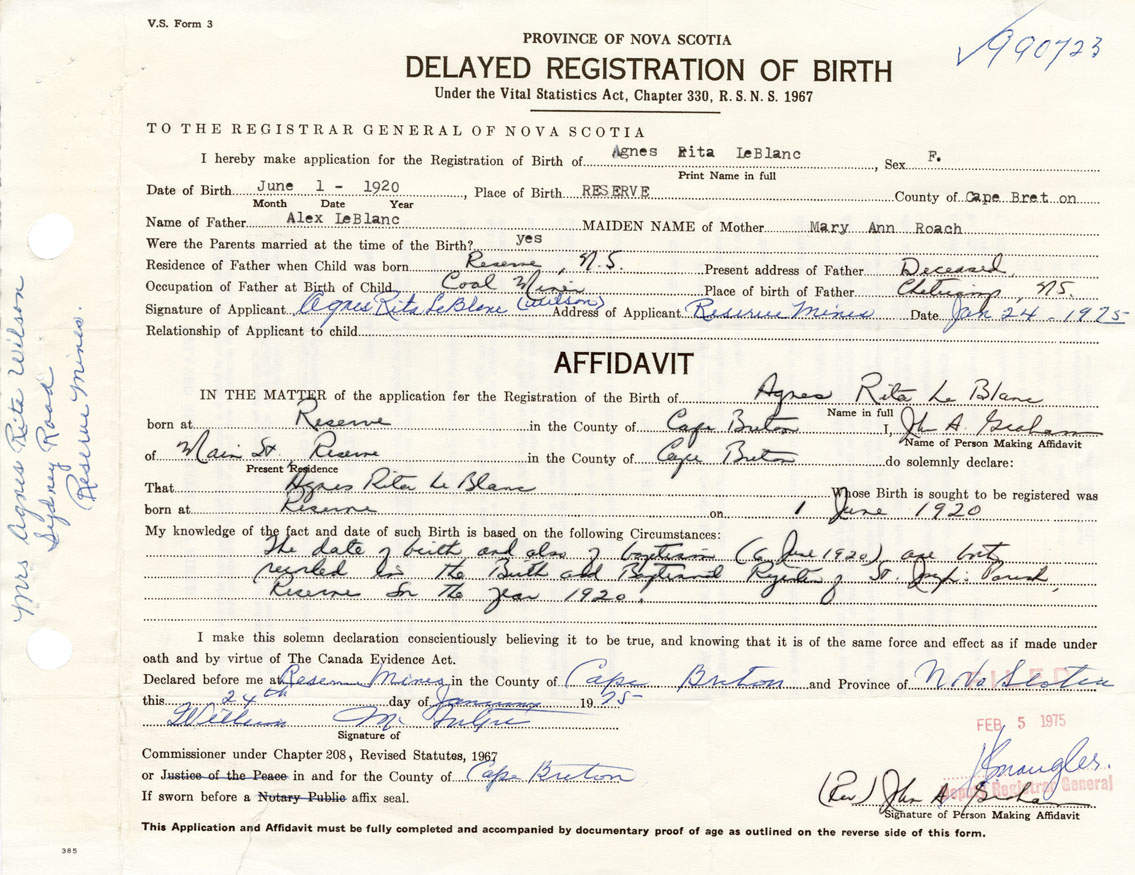 V.S. Form 3
990723
PROVINCE OF NOVA SCOTIA
DELAYED REGISTRATION OF BIRTH
Under the Vital Statistics Act, Chapter 330, R. S. N. S. 1967
TO THE REGISTRAR GENERAL OF NOVA SCOTIA
I hereby make application for the Registration of Birth of Agnes Rita LeBlanc, Sex F.
Print Name in full
Date of Birth June 1 - 1920, Place of Birth RESERVE County of Cape Bret on
Month Date Year
Name of Father Alex LeBlanc MAIDEN NAME of Mother Mary Ann Roach
Were the Parents married at the time of the Birth? yes
Residence of Father when Child was born Reserve, N.S. Present address of Father Deceased
Occupation of Father at Birth of Child Coal Place of birth of Father N.S.
Signature of Applicant Agnes Rita LeBlanc (Wilson) Address of Applicant Reserve Mines Date Jan 24 - 1975
Relationship of Applicant to child
AFFIDAVIT
IN THE MATTER of the application for the Registration of the Birth of Agnes Rita Le Blanc
Name in full
born at Reserve in the County of Cape Breton I, John A. Graham
Name of Person Making Affidavit
of Main St, Reserve in the County of Cape Breton do solemnly declare:
Present Residence
That Agnes Rita Le Blanc Whose Birth is sought to be registered was
born at Reserve on 1 June 1920
My knowledge of the fact and date of such Birth is based on the following Circumstances:
The date of birth and also of baptism (6 June 1920) are both
recorded in the Birth and Baptismal Register of St. Joseph's Parish,
Reserve for the year 1920.
I make this solemn declaration conscientiously believing it to be true, and knowing that it is of the same force and effect as if made under
oath and by virtue of The Canada Evidence Act.
Declared before me at Reserve Mines in the County of Cape Breton and Province of Nova Scotia
this 24th day of January 1975
William
Signature of
FEB 5 1975
Commissioner under Chapter 208, Revised Statutes, 1967
or Justice of the Peace in and for the County of Cape Breton
Deputy Registrar General
If sworn before a Notary Public affix seal.
(Rev) John A Graham
Signature of Person Making Affidavit
This Application and Affidavit must be fully completed and accompanied by documentary proof of age as outlined on the reverse side of this form.
385
Mrs Agnes Rita Wilson
Sydney Road
Reserve Mines.